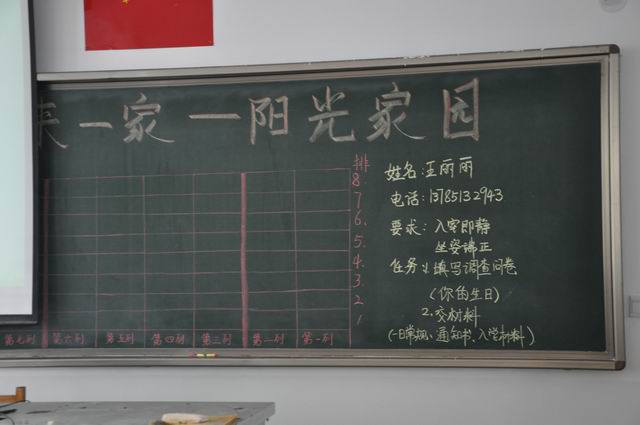 一家一阳光家园
排
8.
7.
6.
5.
4.
3.
2
1
第七列 第六列 第五列 第四列 第三列 第二列 第一列
姓名:王丽丽
电话:13785132943
要求:入室即静
坐姿端正
任务:1.填写调查问卷
(你的生日)
2.交材料
(一日常规、通知书、入学材料)